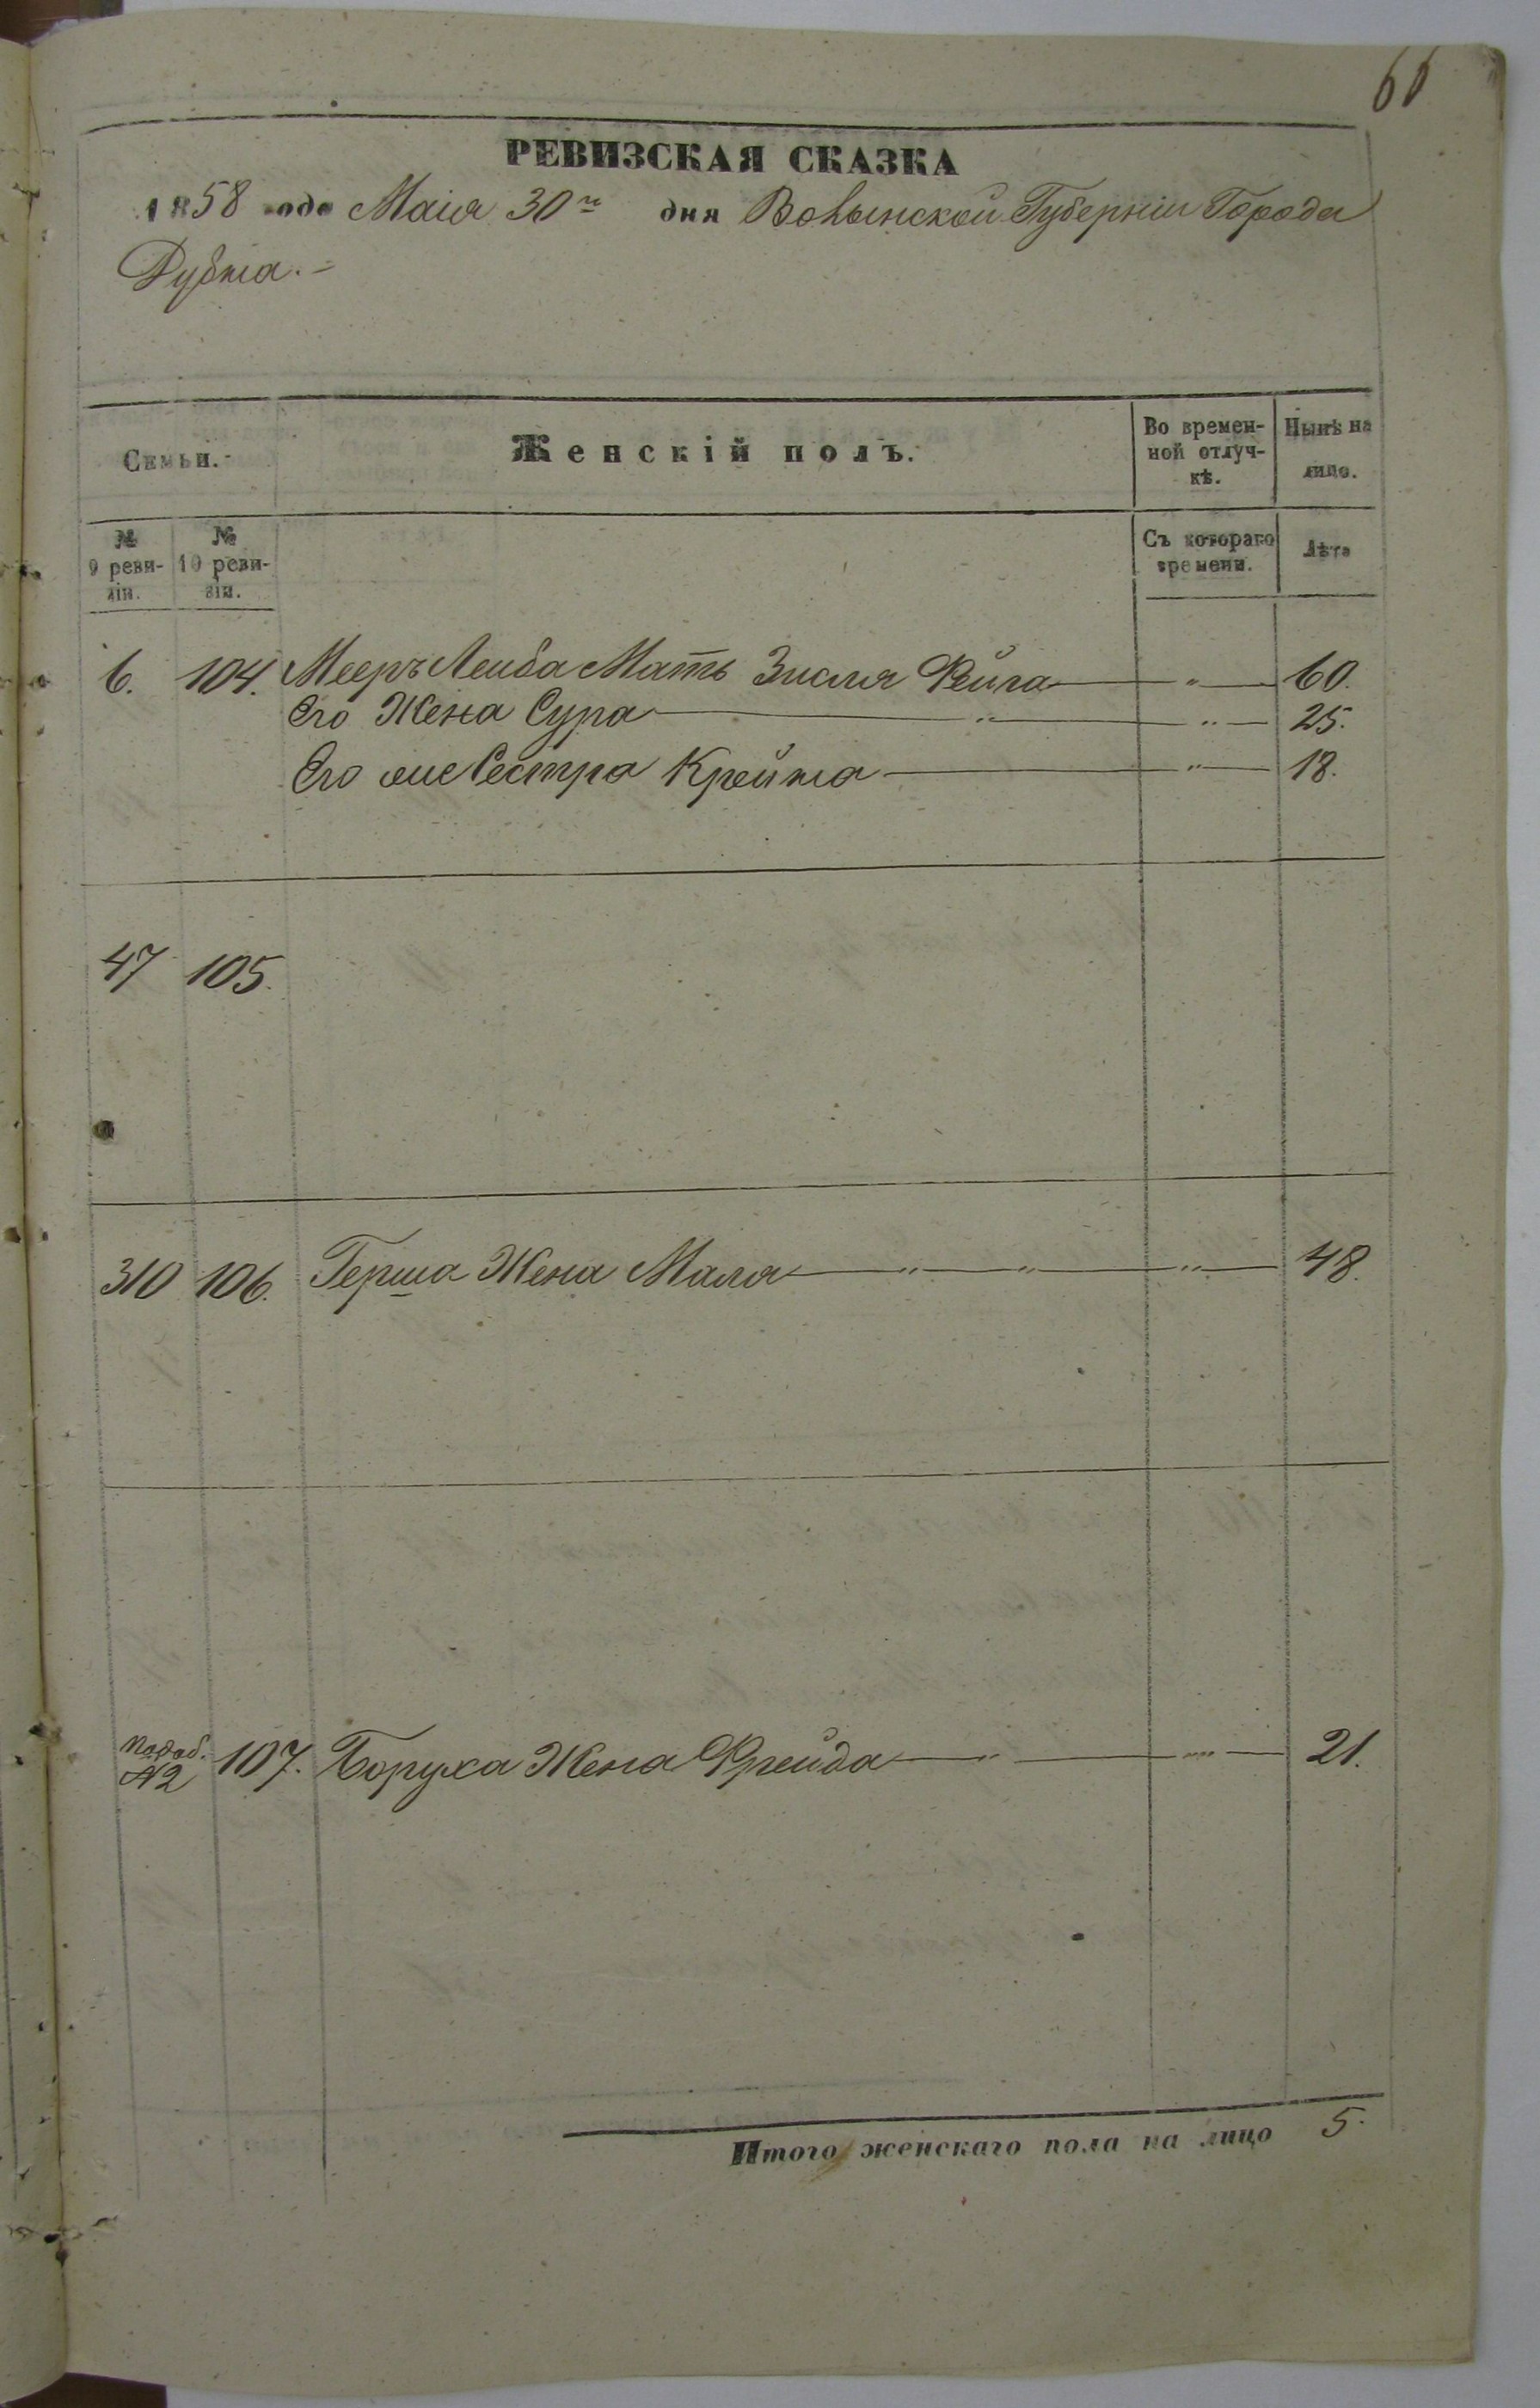 66
РЕВИЗСКАЯ СКАЗКА
1858 года Маія 30го дня Волынской Губерніи Города
Дубна.
Семьи.
Женскій полъ.
Во времен-
ной отлуч-
кѣ.
Нынѣ на
лицо.
№
9 реви-
зіи.
№
10 реви-
зіи.
Съ котораго
времени.
Лѣта
6. 104. Мееръ Лейба Мать Зисля Фейга 60.
Его Жена Сура 25.
Его же Сестра Крейна 18.
47 105.
310 106. Герша Жена Маля 48.
по доб.
№2 107. Боруха Жена Фрейда 21.
Итого женскаго пола на лицо 5.